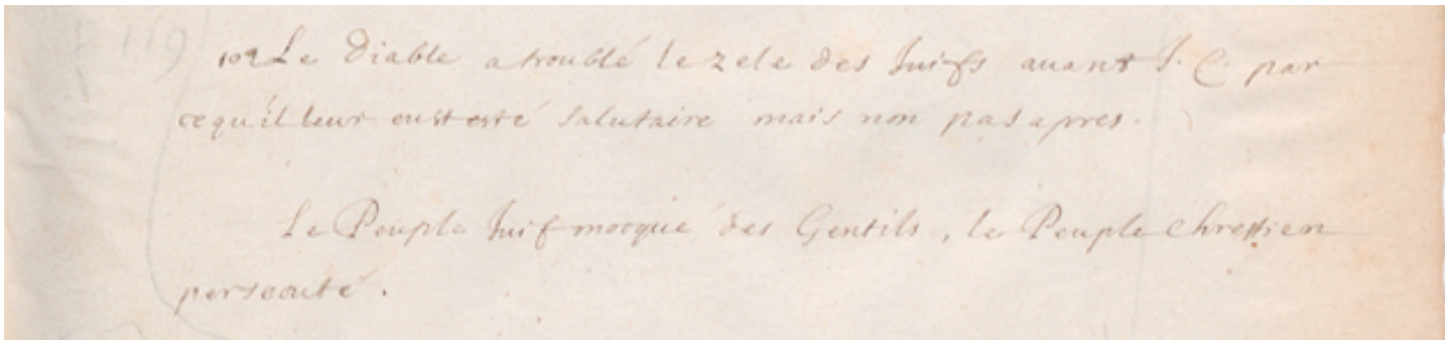 109 Le Diable a troublé le zele des Juifs auant J. C. par
cequ'il leur eust esté salutaire mais non pas apres.
Le Peuple Juif mocqué des Gentils, le Peuple Chrestien
persecuté.